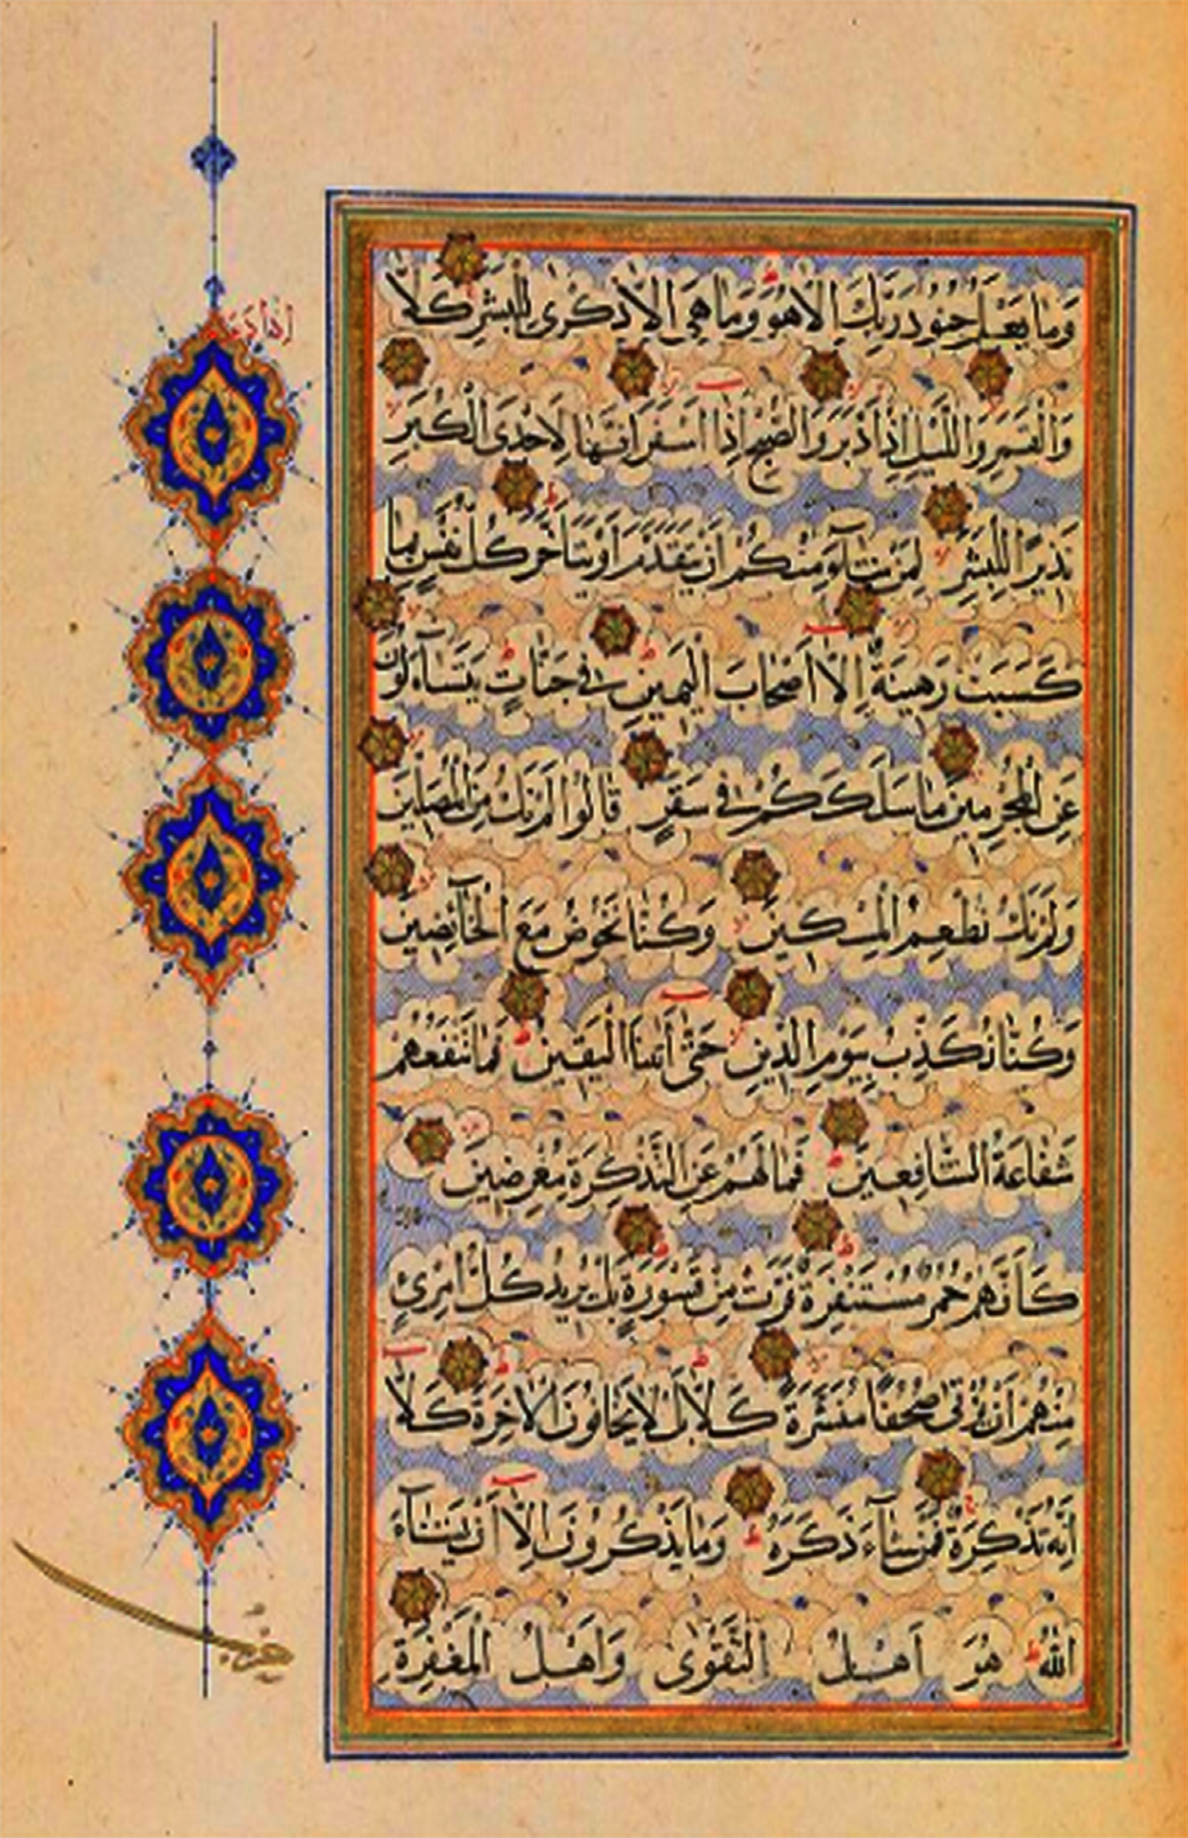 وَمَا يَعْلَمُ جُنُودَ رَبِّكَ اِلَّا هُوَ وَمَا هِيَ اِلَّا ذِكْرٰى لِلْبَشَرِ كَلَّا
وَالْقَمَرِ وَالَّيْلِ اِذْ اَدْبَرَ وَالصُّبْحِ اِذَا اَسْفَرَ اِنَّهَا لَاِحْدَى الْكُبَرِ
نَذِيرًا لِلْبَشَرِ لِمَنْ شَآءَ مِنْكُمْ اَنْ يَتَقَدَّمَ اَوْ يَتَاَخَّرَ كُلُّ نَفْسٍ بِمَا
كَسَبَتْ رَهِينَةٌ اِلَّا اَصْحَابَ الْيَمِينِ فِي جَنَّاتٍ يَتَسَآءَلُونَ
عَنِ الْمُجْرِمِينَ مَا سَلَكَكُمْ فِي سَقَرَ قَالُوا لَمْ نَكُ مِنَ الْمُصَلِّينَ
وَلَمْ نَكُ نُطْعِمُ الْمِسْكِينَ وَكُنَّا نَخُوضُ مَعَ الْخَآئِضِينَ
وَكُنَّا نُكَذِّبُ بِيَوْمِ الدِّينِ حَتّٰى اَتٰينَا الْيَقِينُ فَمَا تَنْفَعُهُمْ
شَفَاعَةُ الشَّافِعِينَ فَمَا لَهُمْ عَنِ التَّذْكِرَةِ مُعْرِضِينَ
كَاَنَّهُمْ حُمُرٌ مُسْتَنْفِرَةٌ فَرَّتْ مِنْ قَسْوَرَةٍ بَلْ يُرِيدُ كُلُّ امْرِئٍ
مِنْهُمْ اَنْ يُؤْتٰى صُحُفًا مُنَشَّرَةً كَلَّا بَلْ لَا يَخَافُونَ الْاٰخِرَةَ كَلَّا
اِنَّهُ تَذْكِرَةٌ فَمَنْ شَآءَ ذَكَرَهُ وَمَا يَذْكُرُونَ اِلَّا اَنْ يَشَآءَ
اللّٰهُ هُوَ اَهْلُ التَّقْوٰى وَاَهْلُ الْمَغْفِرَةِ